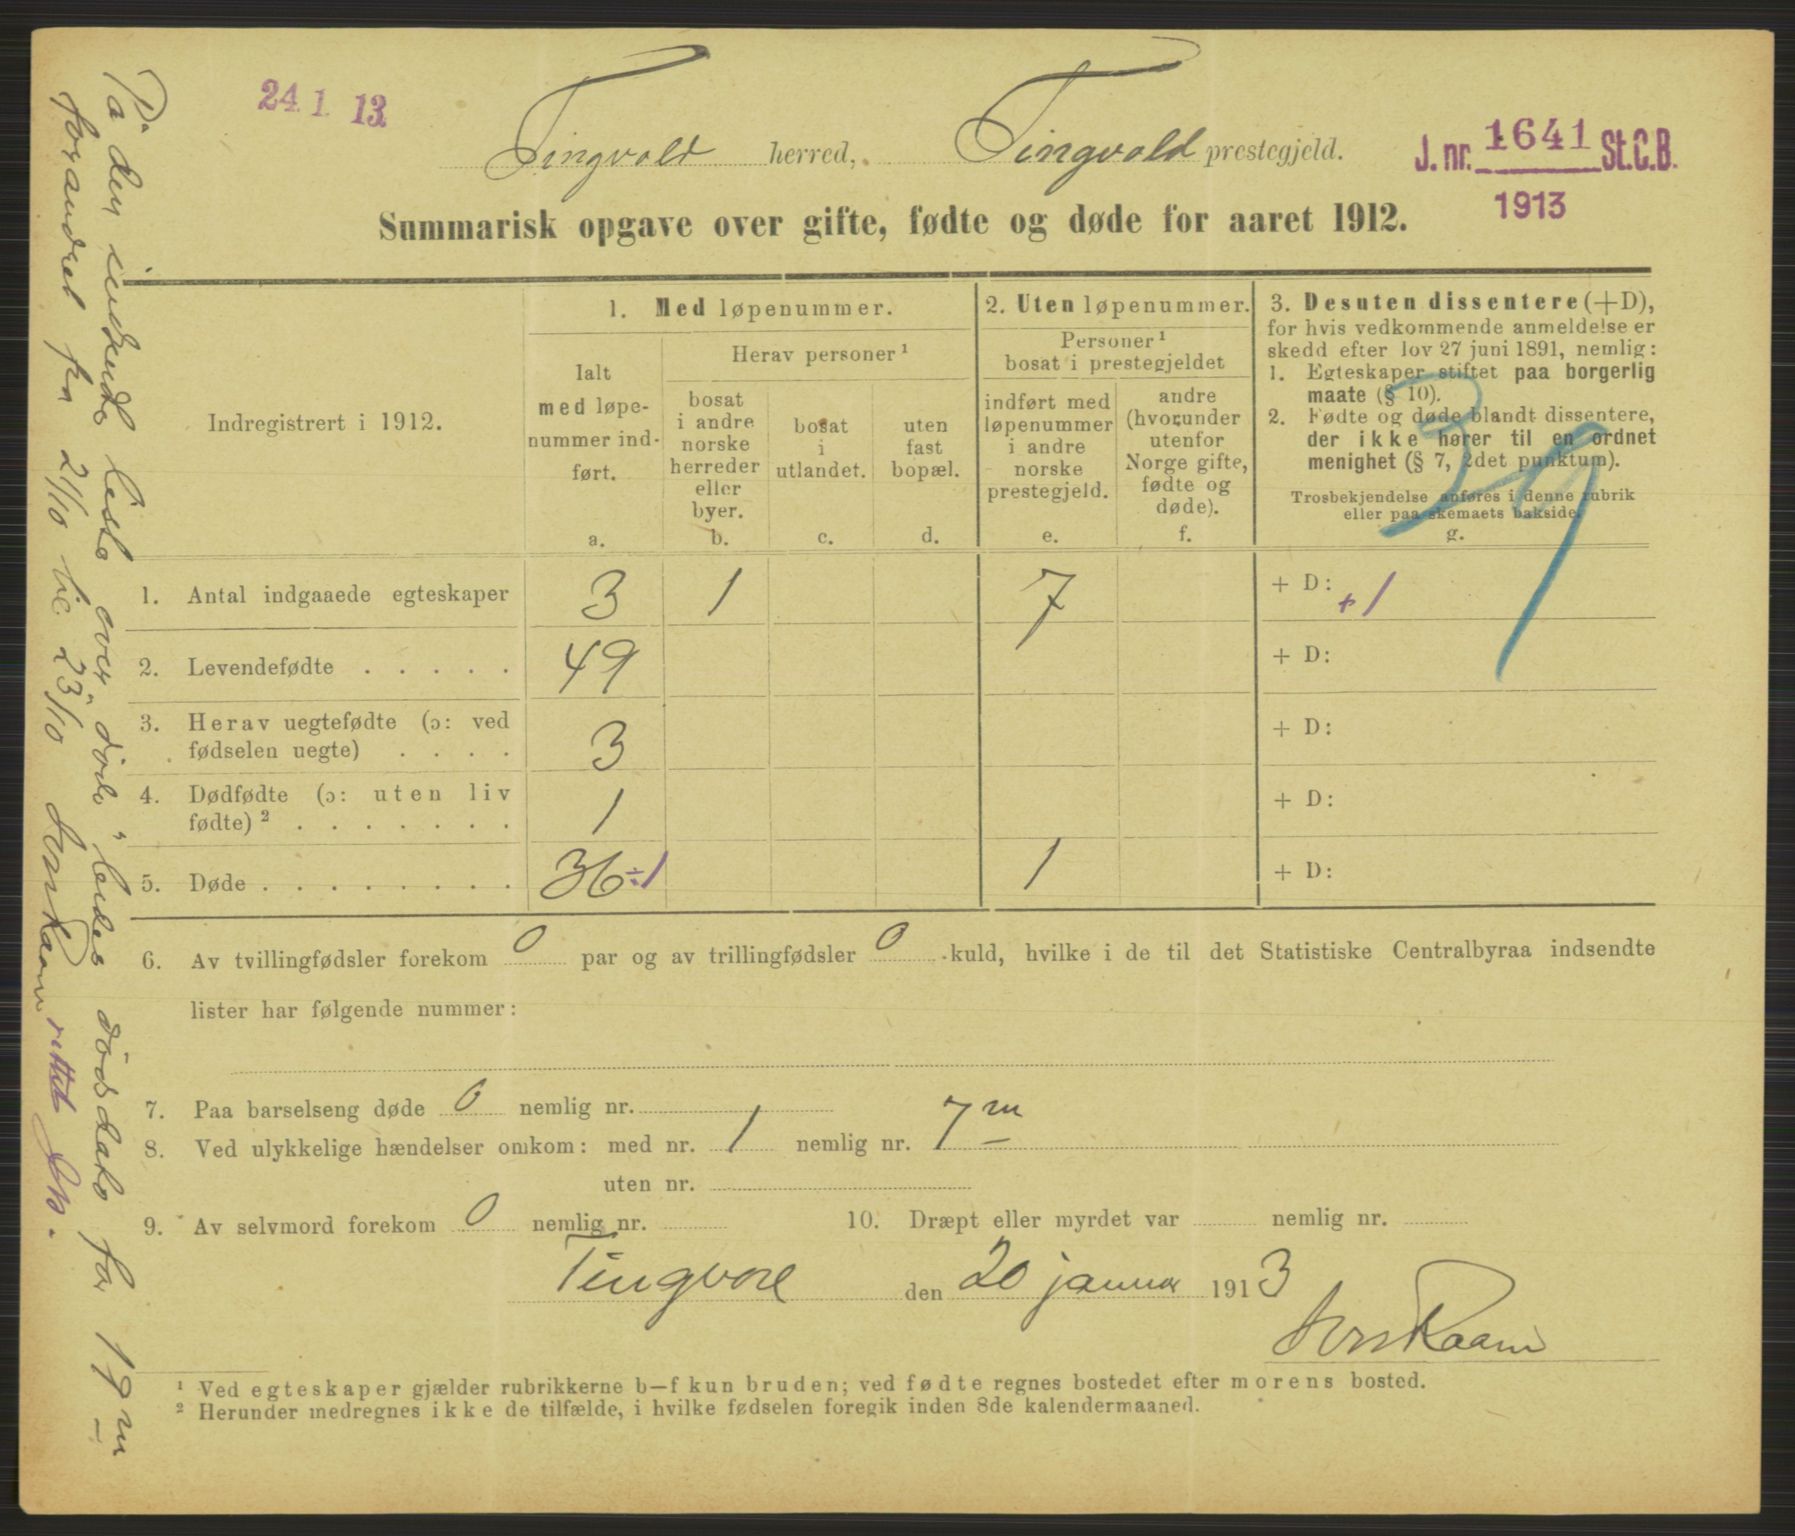 24 1 13
Tingvold herred, Tingvold prestegjeld.
J. nr. 1641 St.C.B.
1913
Summarisk opgave over gifte, fødte og døde for aaret 1912.
Indregistrert i 1912.
1. Med løpenummer.
Ialt
med løpe-
nummer ind-
ført.
a.
Herav personer ¹
bosat
i andre
norske
herreder
eller
byer.
b.
bosat
i
utlandet.
c.
uten
fast
bopæl.
d.
2. Uten løpenummer.
Personer ¹
bosat i prestegjeldet
indført med
løpenummer
i andre
norske
prestegjeld.
e.
andre
(hvorunder
utenfor
Norge gifte,
fødte og
døde).
f.
3. Desuten dissentere (+D),
for hvis vedkommende anmeldelse er
skedd efter lov 27 juni 1891, nemlig:
1. Egteskaper stiftet paa borgerlig
maate (§ 10).
2. Fødte og døde blandt dissentere,
der ikke hører til en ordnet
menighet (§ 7, 2det punktum).
Trosbekjendelse anføres i denne rubrik
eller paa skemaets bakside.
g.
1. Antal indgaaede egteskaper 3 1 7 + D: +1
2. Levendefødte . . . . . 49 + D:
3. Herav uegtefødte (ɔ: ved
fødselen uegte) . . . . 3 + D:
4. Dødfødte (ɔ: uten liv
fødte) ² . . . . . . . 1 + D:
5. Døde . . . . . . . . 36 ÷1 1 + D:
6. Av tvillingfødsler forekom 0 par og av trillingfødsler 0 kuld, hvilke i de til det Statistiske Centralbyraa indsendte
lister har følgende nummer:
7. Paa barselseng døde 0 nemlig nr.
8. Ved ulykkelige hændelser omkom: med nr. 1 nemlig nr. 7
uten nr.
9. Av selvmord forekom 0 nemlig nr.
10. Dræpt eller myrdet var nemlig nr.
Tingvold den 20 januar 1913
¹ Ved egteskaper gjælder rubrikkerne b—f kun bruden; ved fødte regnes bostedet efter morens bosted.
² Herunder medregnes ikke de tilfælde, i hvilke fødselen foregik inden 8de kalendermaaned.
På den indsendte liste over døde døds dato for 19
forandret fra 21/10 til 23/10
rettet